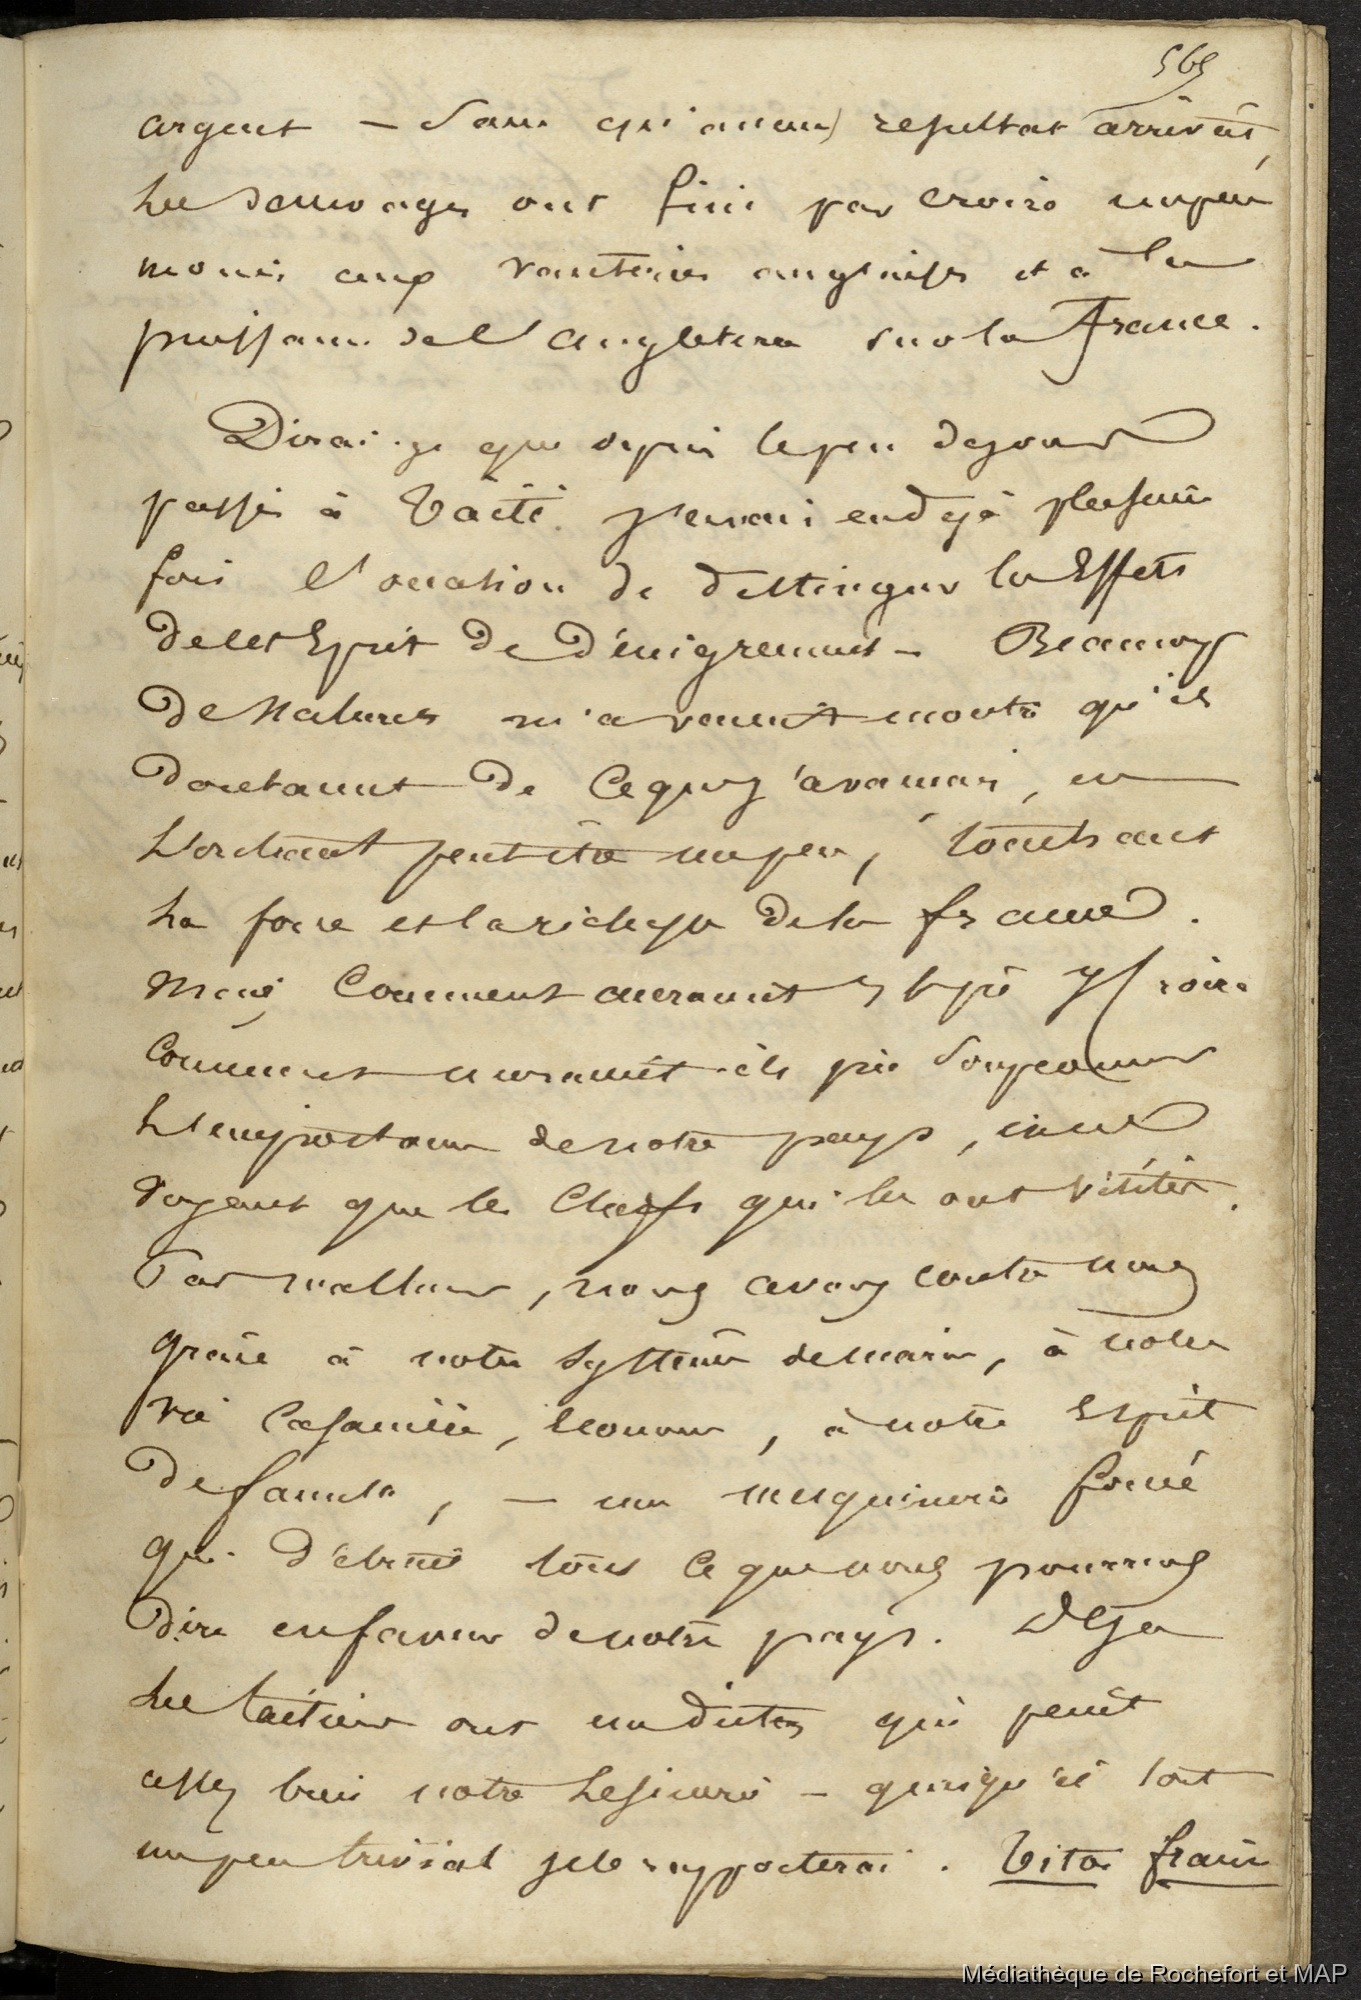 565
argent — sans qu'aucun resultat arrivât,
les sauvages ont fini par croire un peu
moins aux vanteries anglaises et à la
puissance de l'angleterre sur la France.
Dirai-je que depuis le peu de jours
passés à Taïti. j'en ai eu déjà plusieurs
fois l'occasion de distinguer les Effets
de cet Esprit de dénigrement — Beaucoup
de Naturels m'avouent qu'ils
doutaient de ce que j'avançais, en
peut être un peu, touchant
la force et la richesse de la france.
Mais comment auraient y croire
comment auraient-ils pu soupçonner
l'importance de notre pays, eux
voyant que les Chefs qui les ont visités.
Par malheur, nous avons contre nous
grâce à notre système de marine, à notre
vie casanière, économe, à notre Esprit
de famille, — une mesquinerie forcée
qui détruit tout ce que nous pourrions
dire en faveur de notre pays. Déja
les taïtiens ont un dicton qui peint
assez bien notre lesinerie — quoiqu'il soit
un peu trivial je le rapporterai. Titoi frani
Médiathèque de Rochefort et MAP